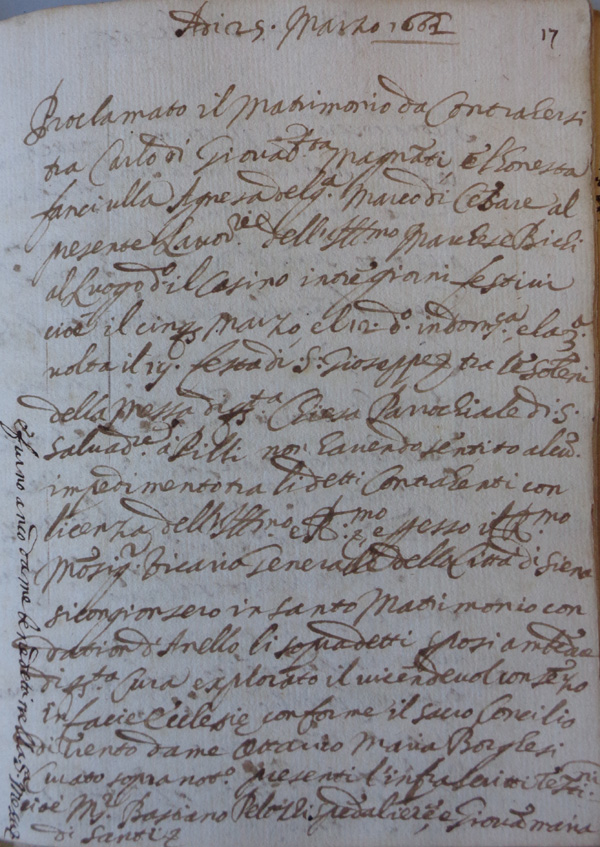 Adi 25. Marzo 1661
17
Proclamato il Matrimonio da Contraersi
tra Carlo di Giova Magnati, e l'honesta
fanciulla Agnesa del q. Marco di Cesare al
presente Lavor.re dell'Ill.mo Marchese Bichi
al luogo d.o il Casino in tre giorni festivi
cioè il cinq. Marzo, e l 12. d.o in dom.ca, e la 3.a
volta il 19. festa di S. Gioseppe tra le solenni
della messa di q.sta Chiesa Parrochiale di S.
Salvad.re à Pilli non havendo sentito alcu.
impedimento tra li detti Contraenti con
licenza dell'Ill.mo e R.mo
Mosig.r Vicario Generale della Città di Siena
si congionsero in santo Matrimonio con
dation d'Anello li sopradetti sposi ambedue
di q.sta Cura explorato il vicendevol consenso
in facie Ecclesie conforme il sacro Concilio
di Trento da me Ottavio Maria Borghesi
Curato sopra not.o presenti l'infrascritti Testi.
cioè M.o Bastiano Spedaliere, e Giova maria
di Santi
e furno anco da me benedetti nella S. Messa